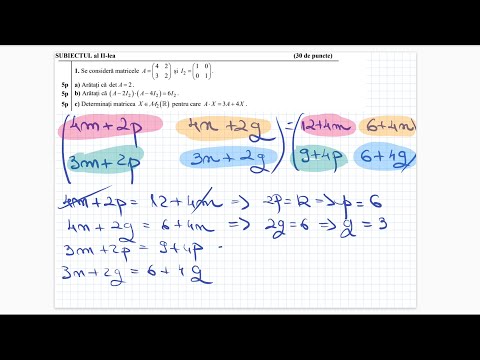 SUBIECTUL al II-lea (30 de puncte)
1. Se consideră matricele A = (4 2 / 3 2) și I₂ = (1 0 / 0 1).
5p a) Arătați că det A = 2.
5p b) Arătați că (A − 2I₂)·(A − 4I₂) = 6I₂.
5p c) Determinați matricea X ∈ M₂(ℝ) pentru care A · X = 3A + 4X.
(4m+2p 4n+2g) = (12+4m 6+4n)
(3m+2p 3n+2g) (9+4p 6+4g)
4m+2p = 12+4m => 2p=12 => p=6
4n+2g = 6+4n => 2g=6 => g=3
3m+2p = 9+4p
3n+2g = 6+4g